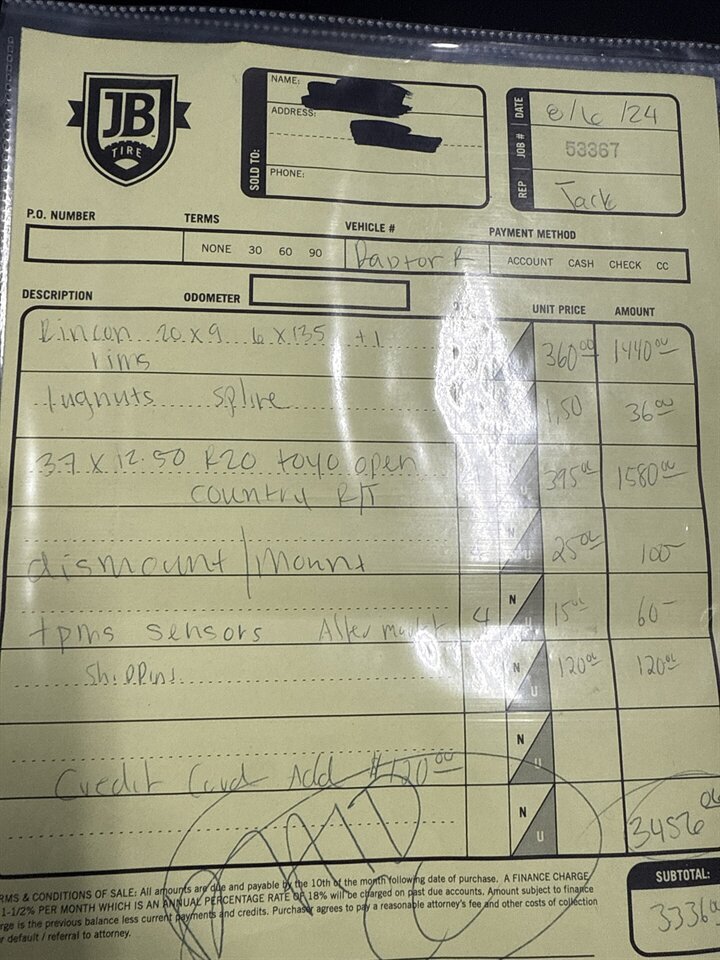 JB
TIRE
SOLD TO:
NAME:
ADDRESS:
PHONE:
DATE 8/6/24
JOB # 53367
REP Jack
P.O. NUMBER TERMS VEHICLE # PAYMENT METHOD
NONE 30 60 90 Raptor R ACCOUNT CASH CHECK CC
DESCRIPTION ODOMETER UNIT PRICE AMOUNT
Rincon 20 x 9 6 x 135 +1 360.00 1440.00
rims
lugnuts spline 1.50 36.00
37 x 12.50 R20 toyo open 395.00 1580.00
country R/T
dismount/mount N U 25.00 100-
tpms sensors After market 4 N U 15.00 60-
Shipping N U 120.00 120.00
N U
Credit Card Add $120.00
N U 3456.00
RMS & CONDITIONS OF SALE: All amounts are due and payable by the 10th of the month following date of purchase. A FINANCE CHARGE
1-1/2% PER MONTH WHICH IS AN ANNUAL PERCENTAGE RATE OF 18% will be charged on past due accounts. Amount subject to finance
rge is the previous balance less current payments and credits. Purchaser agrees to pay a reasonable attorney's fee and other costs of collection
r default / referral to attorney.
SUBTOTAL:
3336.00